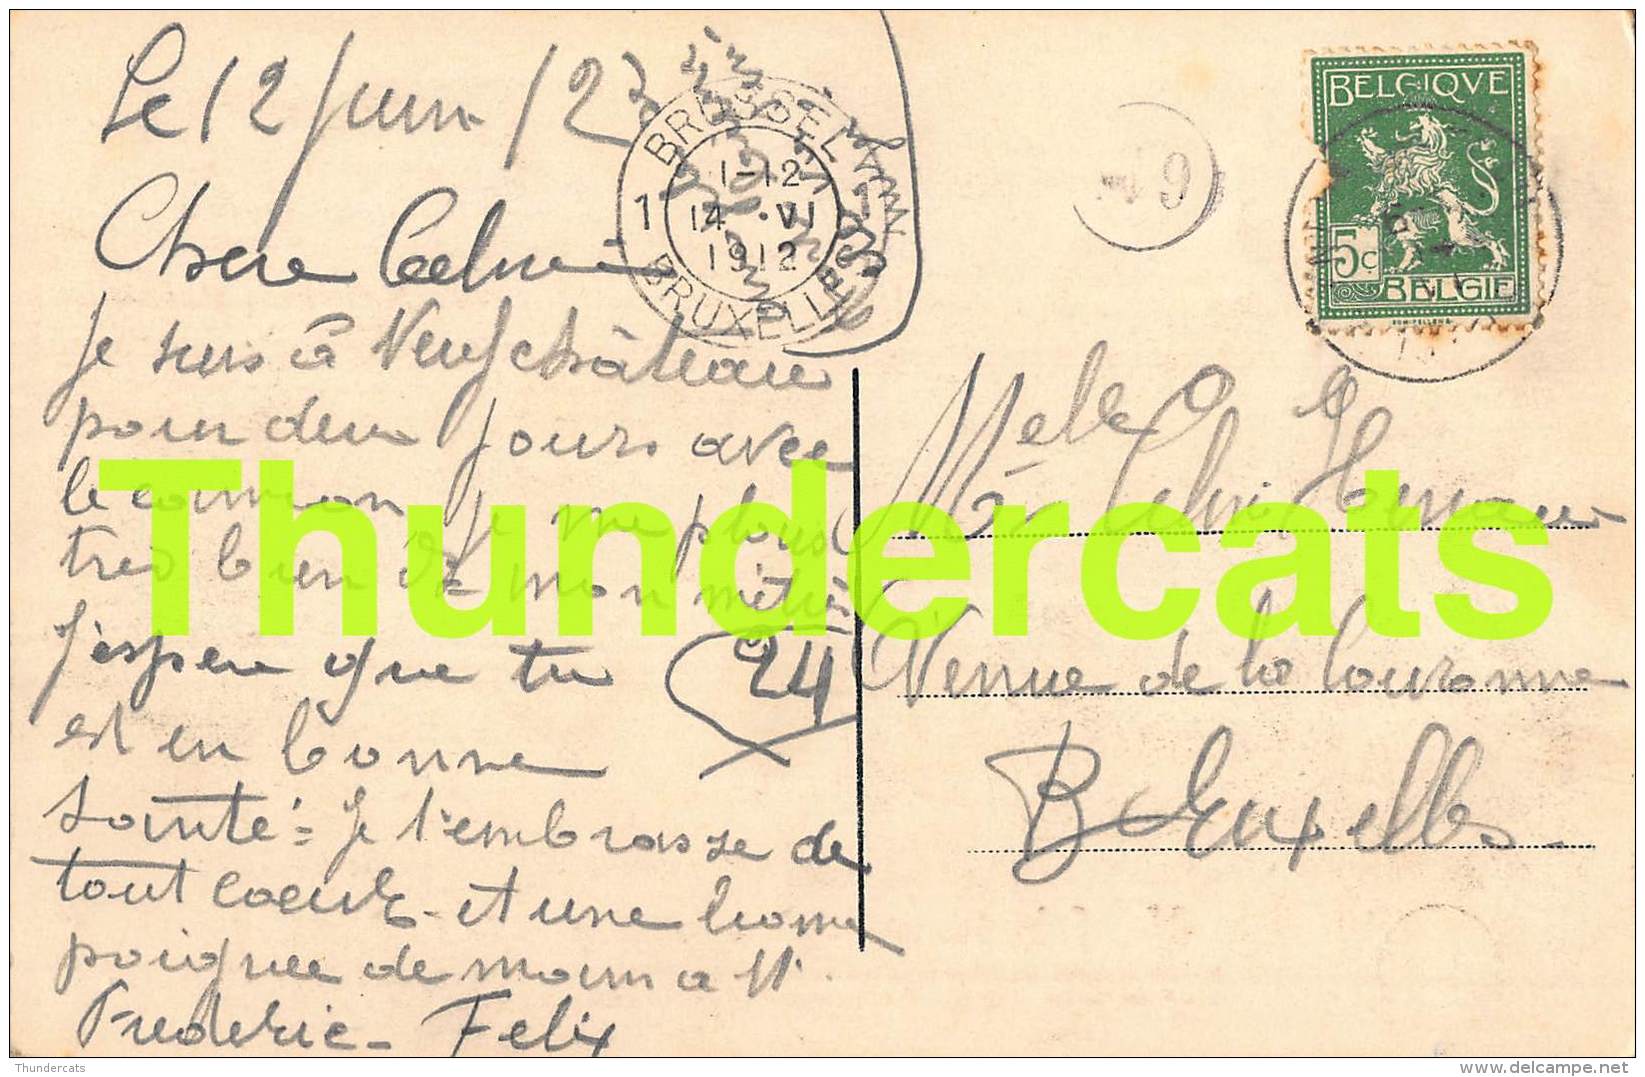 Le 12 juin 12
BRUSSEL
1 1-12 1
14 · VI
1912
BRUXELLES
Chere Celine
je suis à Neufchâteau
pour deux jours avec
le camion je me plais
tres bien da mon métier
J'esper que tu
24
est en bonne
santé = Je t'embrasse de
tout coeur - et une bonne
poignee de main a M.
Frederic - Felix
BELGIQVE
5c
BELGIE
Melle Celine
Venue de la Couronne
Bruxelles.
Thundercats
Thundercats
delcampe.net